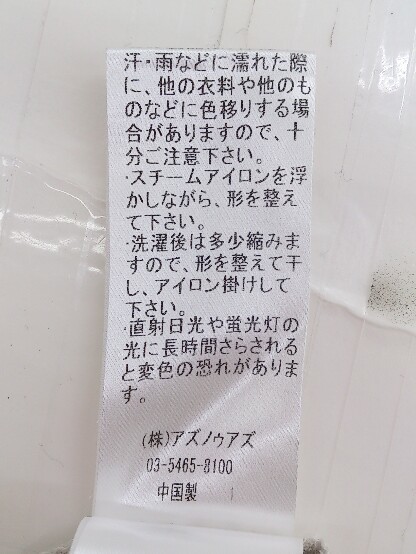 汗・雨などに濡れた際
に、他の衣料や他のも
のなどに色移りする場
合がありますので、十
分ご注意下さい。
・スチームアイロンを浮
かしながら、形を整え
て下さい。
・洗濯後は多少縮みま
すので、形を整えて干
し、アイロン掛けして
下さい。
・直射日光や蛍光灯の
光に長時間さらされる
と変色の恐れがありま
す。
(株)アズノゥアズ
03-5465-8100
中国製